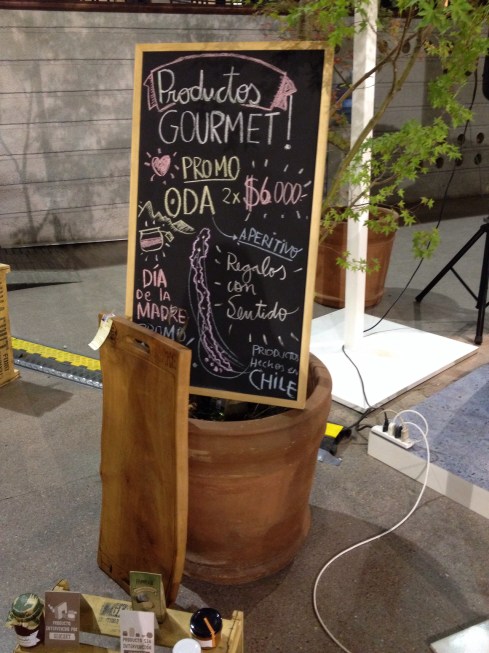 Productos
GOURMET!
PROMO
ODA 2x $6.000-
APERITIVO
Regalos
con
Sentido
DÍA
De la
MADRE
PRODUCTOS
Hechos en
CHILE
PRODUCTO
PRODUCTO CON
INTERVENCIÓN